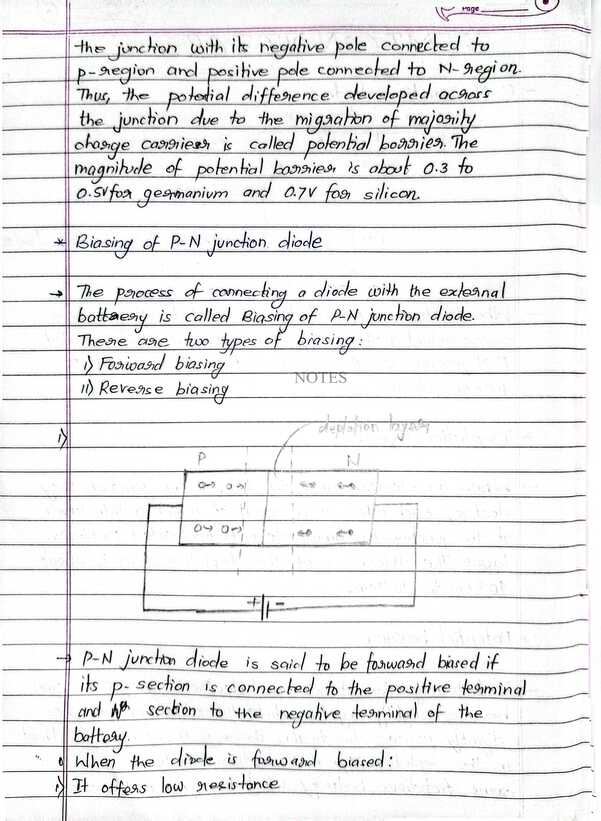 Page
the junction with its negative pole connected to
p-region and positive pole connected to N-region.
Thus, the potetial difference developed across
the junction due to the migration of majority
charge carrier is called potential barrier. The
magnitude of potential barrier is about 0.3 to
0.5V for germanium and 0.7V for silicon.
* Biasing of P-N junction diode
→ The process of connecting a diode with the external
battery is called Biasing of P-N junction diode.
There are two types of biasing:
i) Forward biasing
NOTES
ii) Reverse biasing
i)
depletion layer
P N
+ -
→ P-N junction diode is said to be forward biased if
its p-section is connected to the positive terminal
and section to the negative terminal of the
battery.
When the diode is forward biased:
i) It offers low resistance